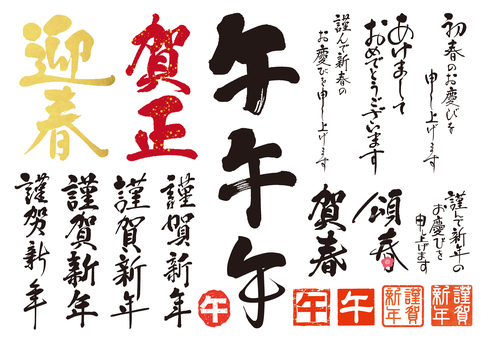 初春のお慶びを
申し上げます
あけまして
おめでとうございます
謹んで新春の
お慶びを申し上げます
午
午
午
賀正
迎春
謹んで新年の
お慶びを
申し上げます
頌春
賀春
謹賀新年
謹賀新年
謹賀新年
謹賀新年
午
午
午
謹賀
新年
謹賀
新年